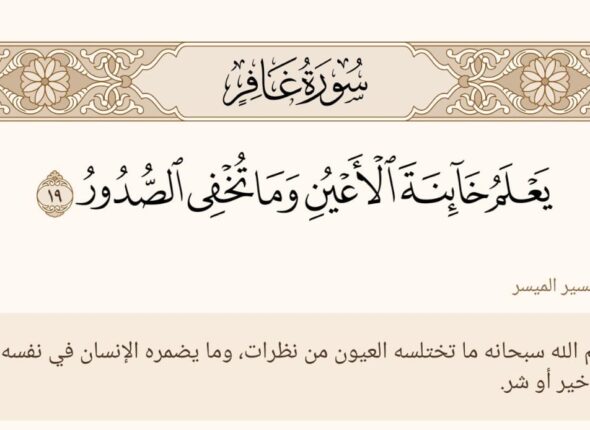 سُورَةُ غَافِرٍ
يَعْلَمُ خَآئِنَةَ ٱلْأَعْيُنِ وَمَا تُخْفِى ٱلصُّدُورُ ١٩
الميسر
الله سبحانه ما تختلسه العيون من نظرات، وما يضمره الإنسان في نفسه
خير أو شر.